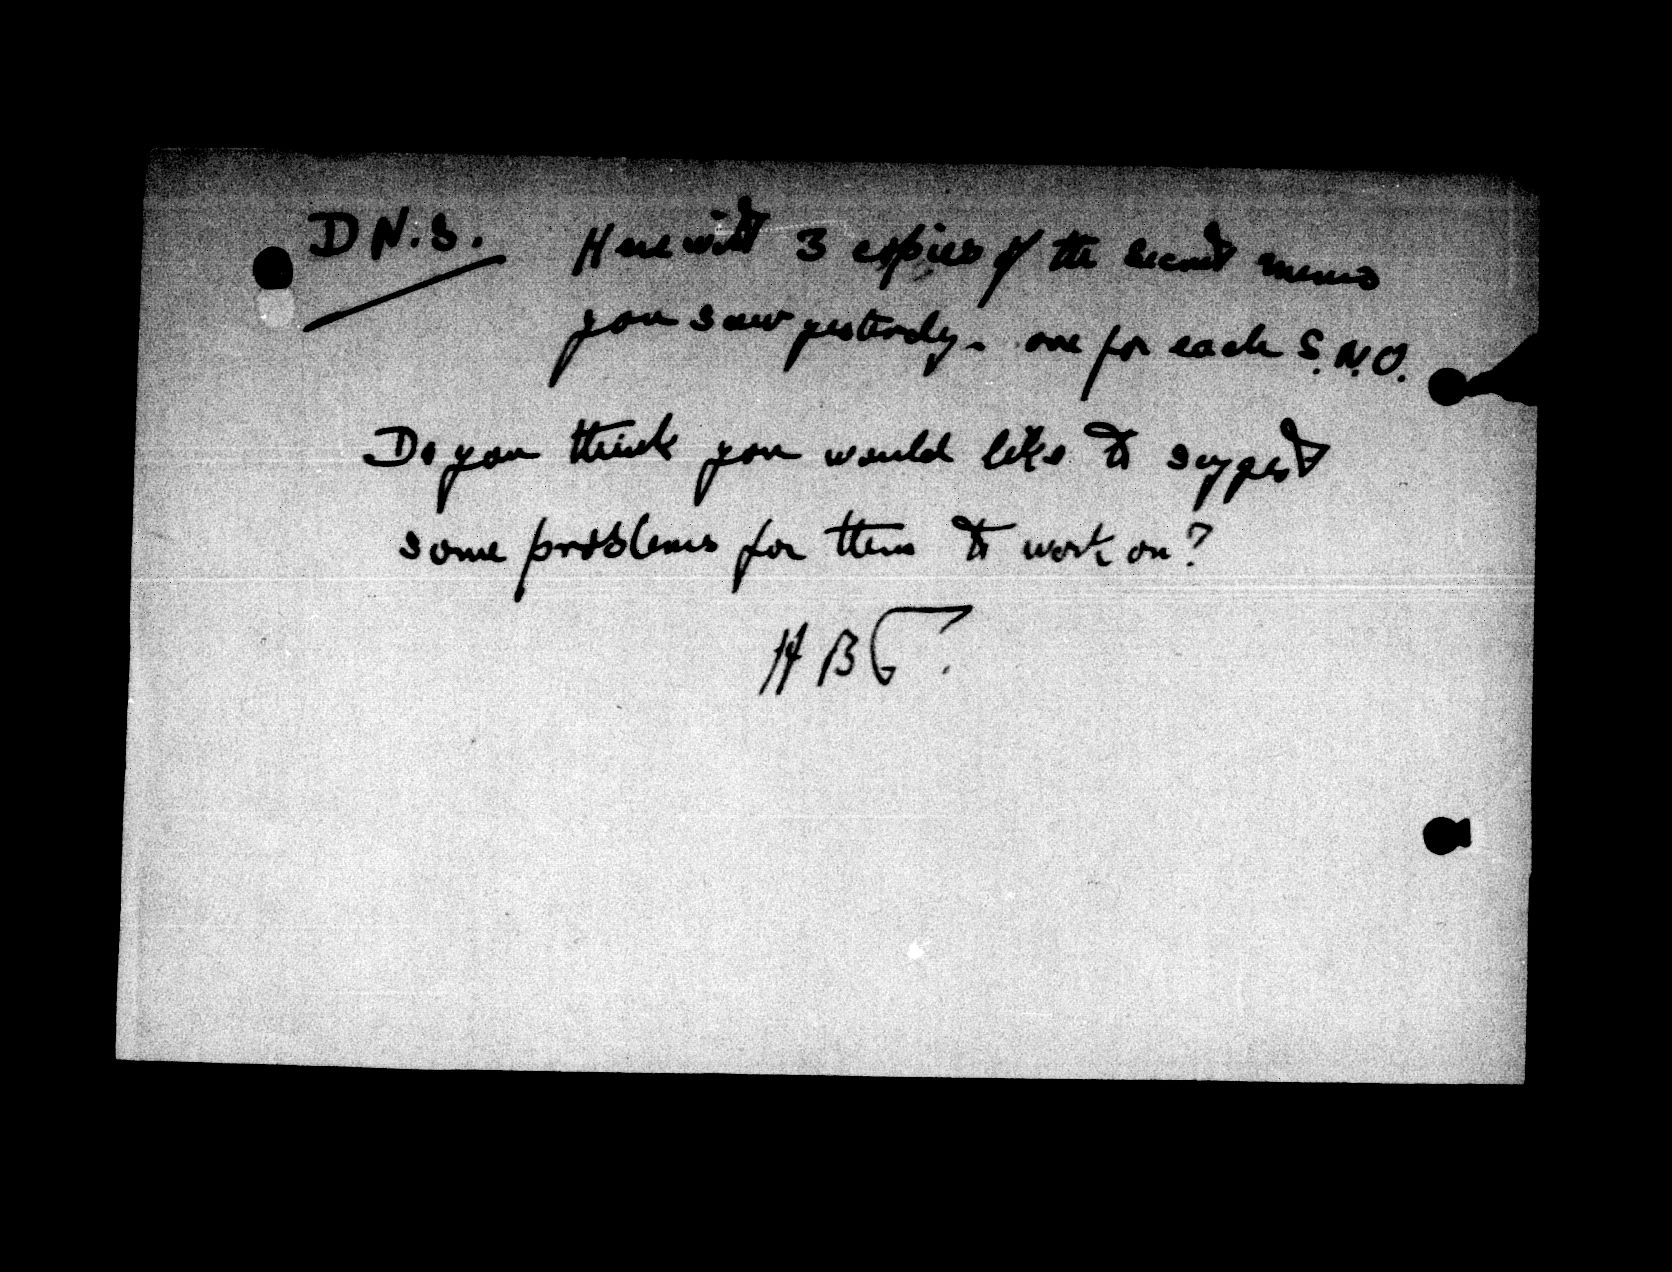 D N.S. Herewith 3 copies of the secret memo
you saw yesterday - one for each S.N.O.
Do you think you would like to suggest
some problems for them to work on?
H B G.